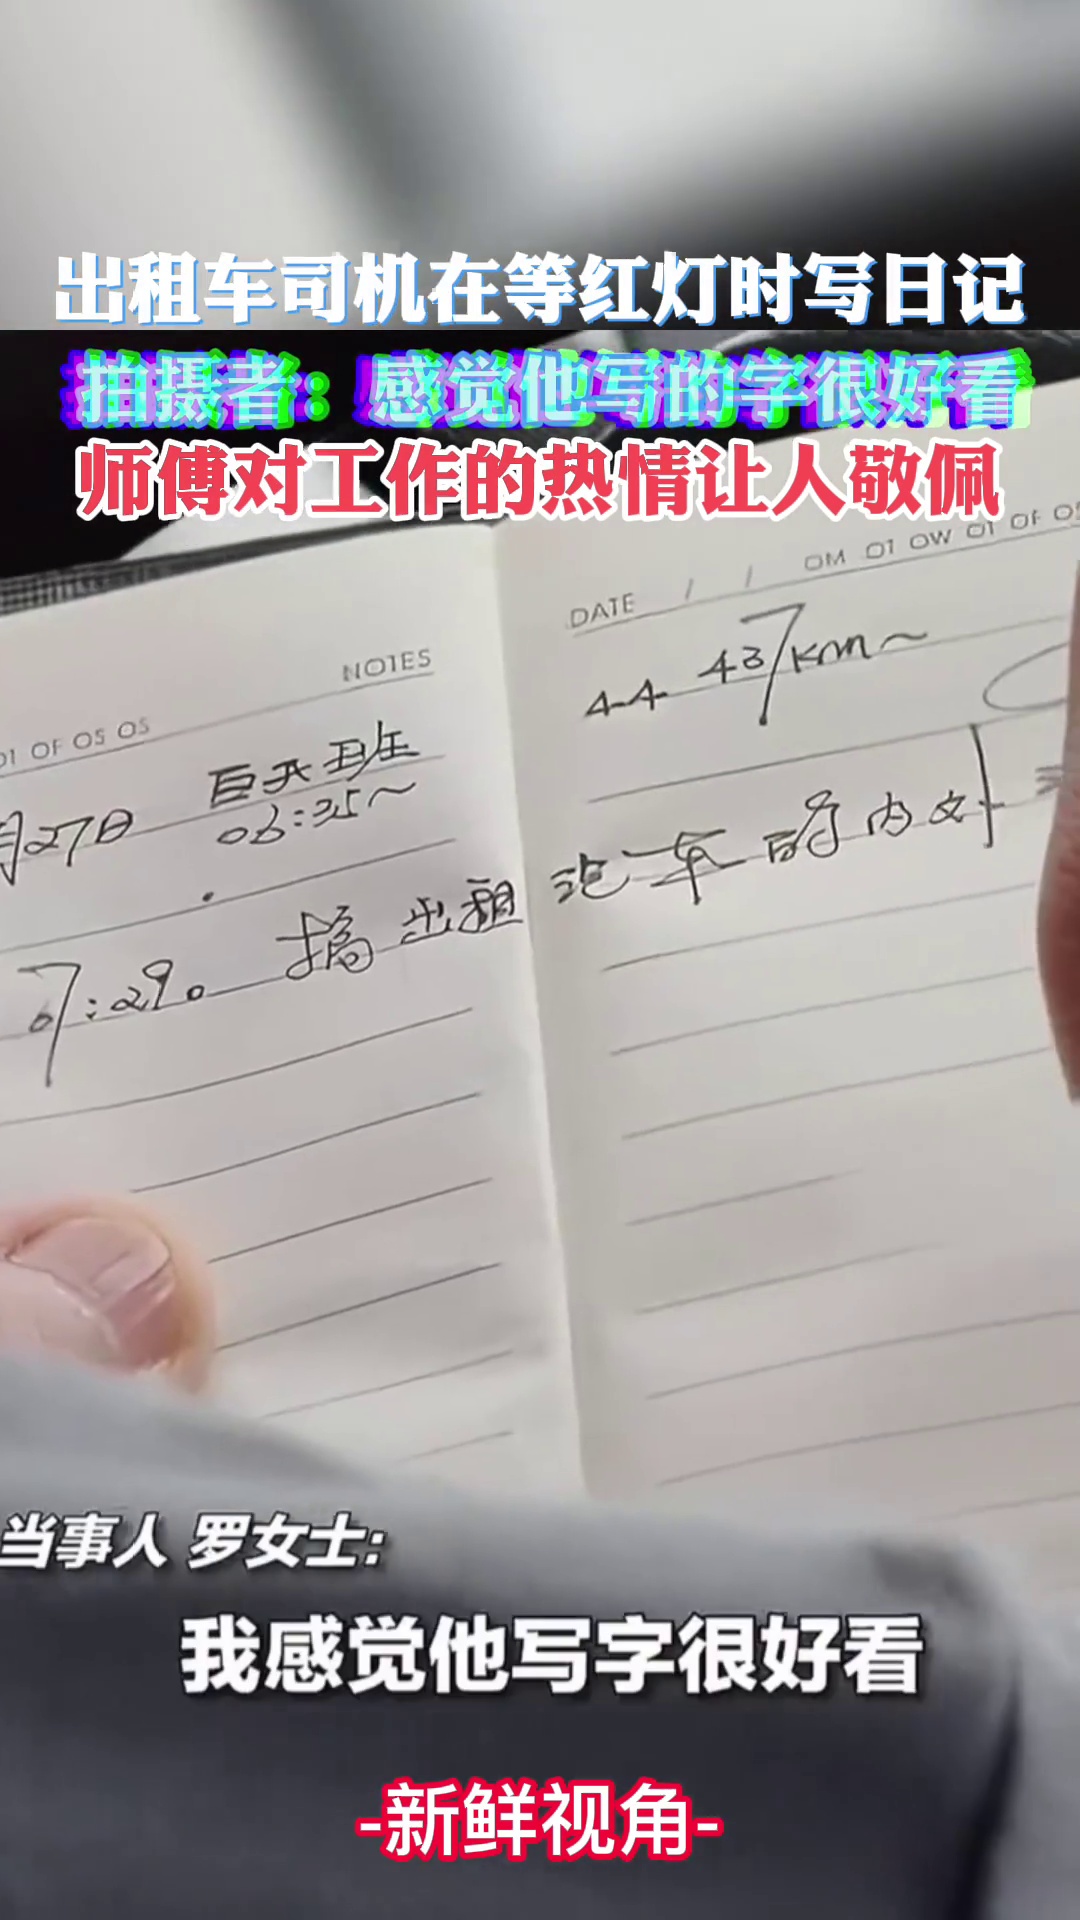 出租车司机在等红灯时写日记
拍摄者：感觉他写的字很好看
师傅对工作的热情让人敬佩
DATE / / OM O1 OW O1 OF O
NOTES
O1 OF OS OS
44 437km~
月27日 白天班
06:35~
07:29。 搞出租
汽车的内
当事人 罗女士:
我感觉他写字很好看
-新鲜视角-